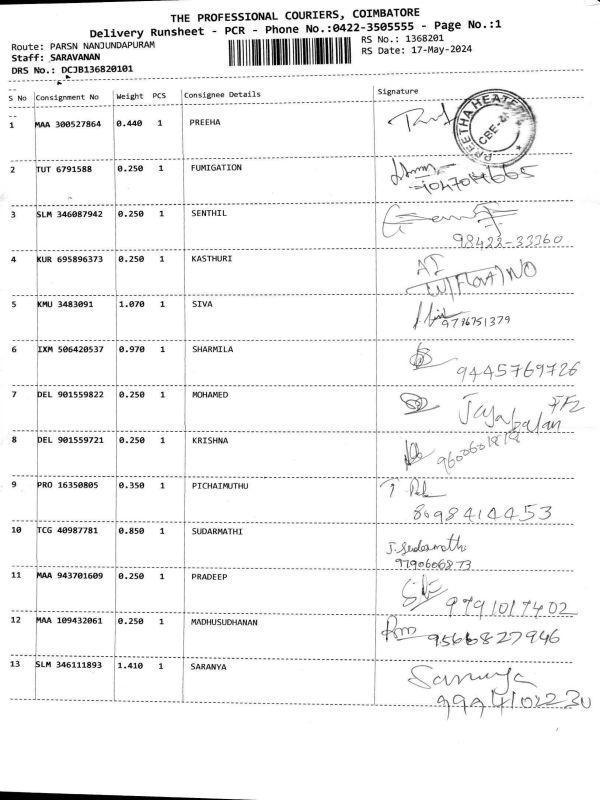 THE PROFESSIONAL COURIERS, COIMBATORE
Delivery Runsheet - PCR - Phone No.:0422-3505555 - Page No.:1
Route: PARSN NANJUNDAPURAM RS No.: 1368201
Staff: SARAVANAN RS Date: 17-May-2024
DRS No.: DCJB136820101
S No Consignment No Weight PCS Consignee Details Signature
1 MAA 300527864 0.440 1 PREEHA
PREETHA HEATE
CBE-
2 TUT 6791588 0.250 1 FUMIGATION
3 SLM 346087942 0.250 1 SENTHIL
98422-33760
4 KUR 695896373 0.250 1 KASTHURI
5 KMU 3483091 1.070 1 SIVA
9736751379
6 IXM 506420537 0.970 1 SHARMILA
9445769726
7 DEL 901559822 0.250 1 MOHAMED
8 DEL 901559721 0.250 1 KRISHNA
9 PRO 16350805 0.350 1 PICHAIMUTHU
8098414453
10 TCG 40987781 0.850 1 SUDARMATHI
J. Sudarmathi
9790606873
11 MAA 943701609 0.250 1 PRADEEP
9791017402
12 MAA 109432061 0.250 1 MADHUSUDHANAN
9566827946
13 SLM 346111893 1.410 1 SARANYA
Saranya